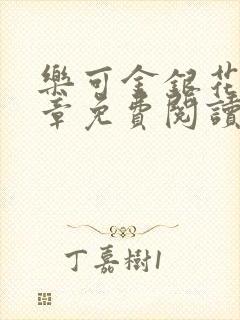 樂可金銀花
章免費閱讀
丁嘉樹1